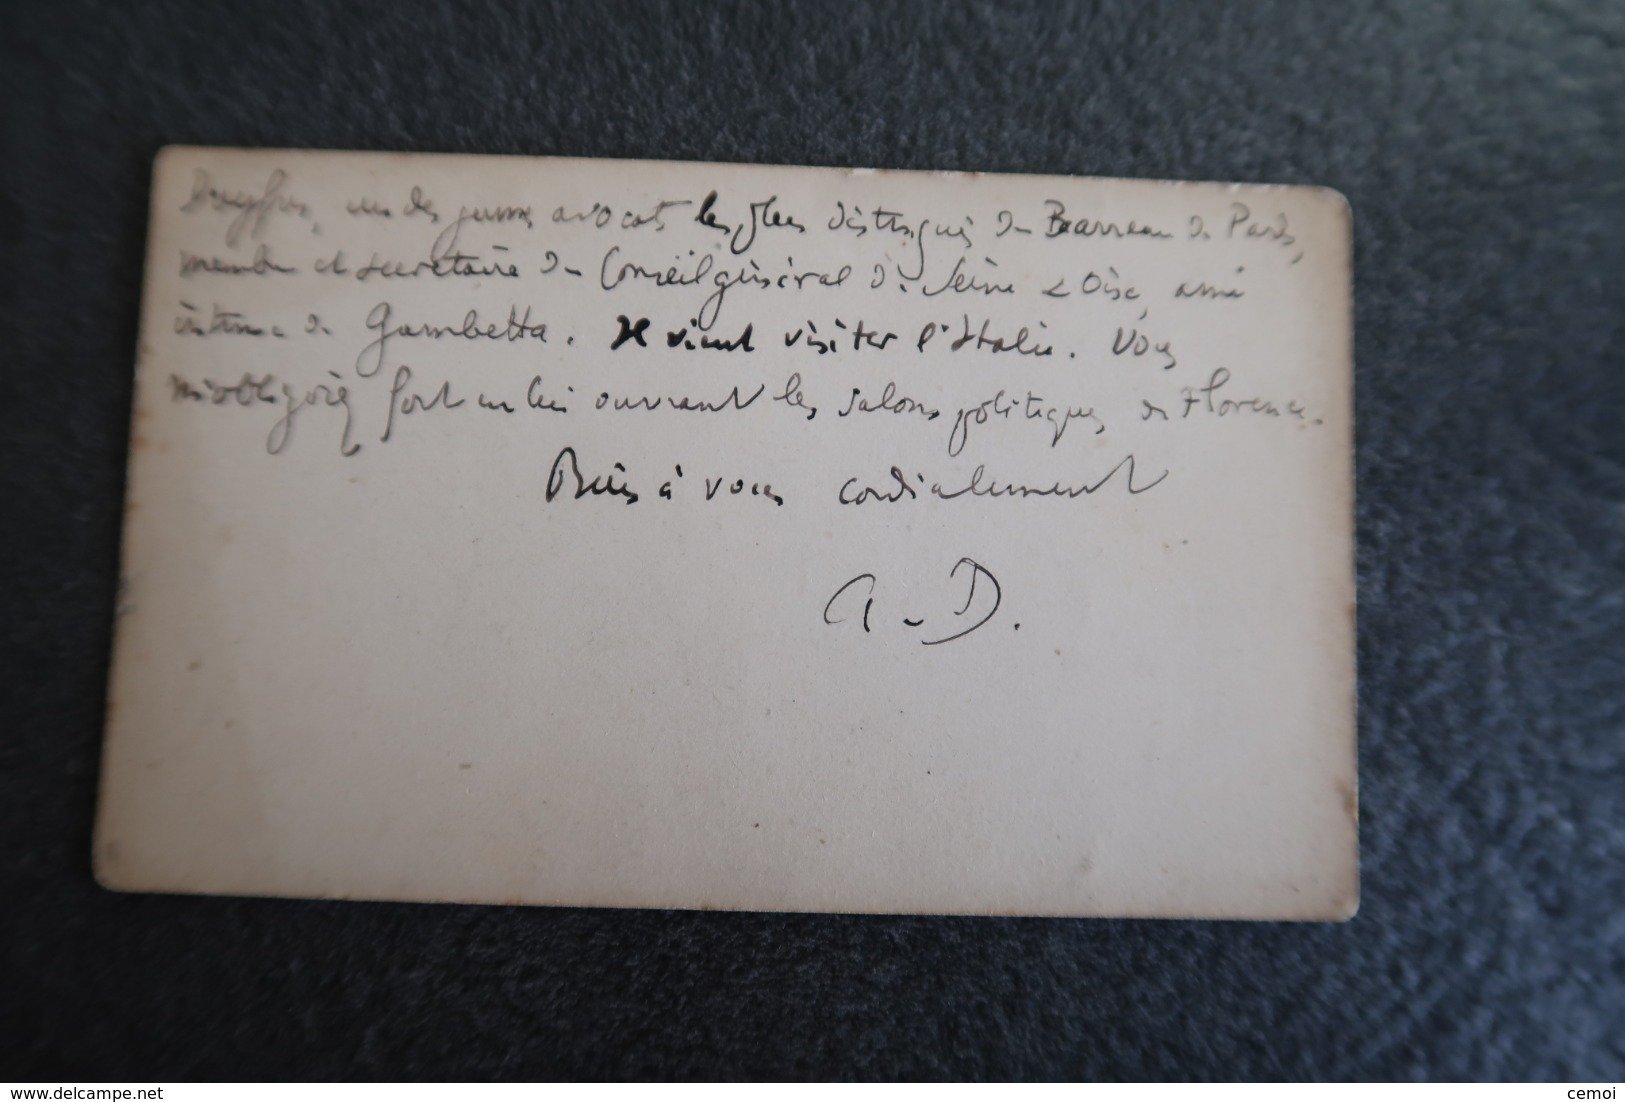 Dreyffus, un des jeunes avocats les plus distingués du Barreau de Paris,
membre et secrétaire du Conseil général de Seine & Oise, ami
intime de Gambetta. Il vient visiter l'Italie. Vous
m'obligeriez fort en lui ouvrant les salons politiques de Florence.
Bien à vous cordialement
A. D.
www.delcampe.net
cemoi